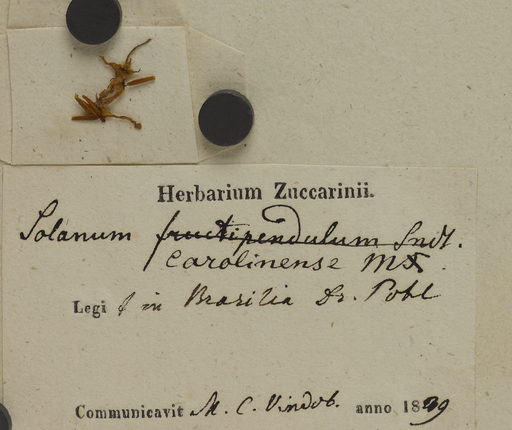 Herbarium Zuccarinii.
Solanum fructipendulum Sndt.
Carolinense
Legit in Brasilia Dr. Pohl
Communicavit M. C. Vindob. anno 1839